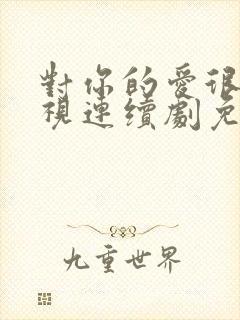 對你的愛很
視連續劇免
九重世界